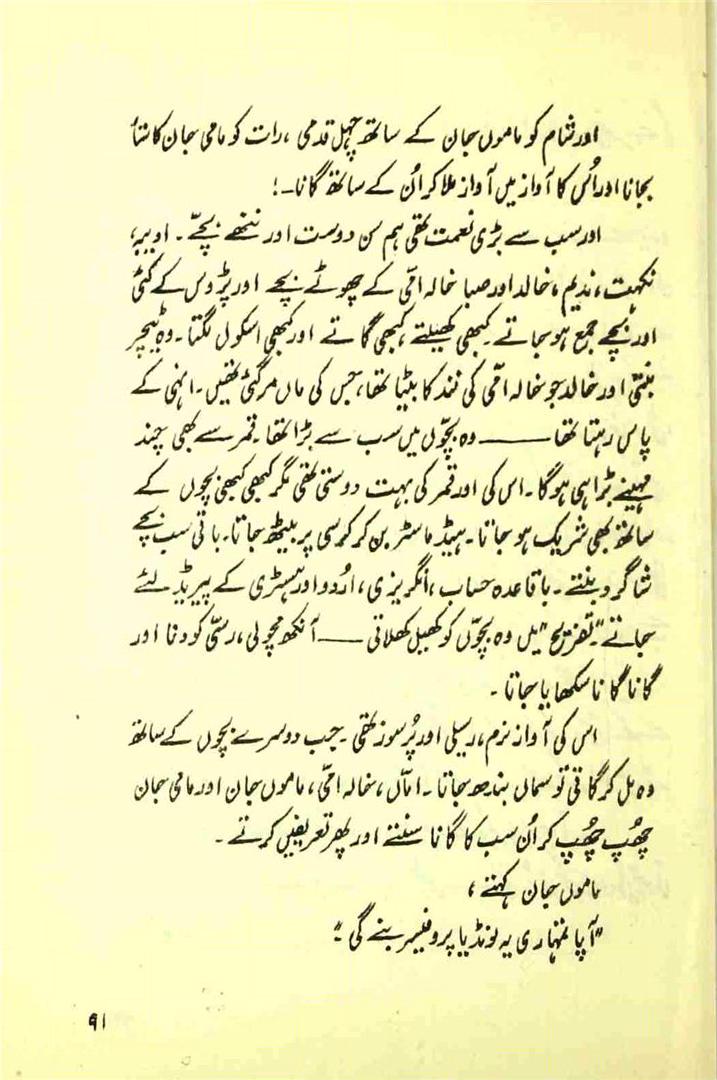 اور شام کو ماموں جان کے ساتھ چہل قدمی، رات کو مامی جان کا ستار
بجانا اور اُس کا آواز میں آواز ملا کر اُن کے ساتھ گانا۔!
اور سب سے بڑی نعمت تھی ہم سن دوست اور ننھے بچّے۔ ادیبہ،
نکہت، ندیم، خالد اور صبا خالہ امّی کے چھوٹے بچے اور پڑوس کے کئی
اور بچے جمع ہو جاتے۔ کبھی کھیلتے، کبھی گاتے اور کبھی اسکول لگتا۔ وہ ٹیچر
بنتی اور خالد جو خالہ امّی کی نند کا بیٹا تھا، جس کی ماں مر گئی تھیں۔ انہی کے
پاس رہتا تھا —— وہ بچّوں میں سب سے بڑا تھا۔ قمر سے بھی چند
مہینے بڑا ہی ہو گا۔ اس کی اور قمر کی بہت دوستی تھی مگر کبھی کبھی بچوں کے
ساتھ بھی شریک ہو جاتا۔ ہیڈ ماسٹر بن کر کرسی پر بیٹھ جاتا۔ باقی سب بچے
شاگرد بنتے۔ باقاعدہ حساب، انگریزی، اُردو اور ہسٹری کے پیریڈ لئے
جاتے۔ "تفریح" میں وہ بچّوں کو کھیل کھلاتی — آنکھ مچولی، رسّی کودنا اور
گانا گانا سکھایا جاتا۔
اس کی آواز نرم، رسیلی اور پُرسوز تھی۔ جب دوسرے بچوں کے ساتھ
وہ مل کر گاتی تو سماں بندھ جاتا۔ امّاں، خالہ امّی، ماموں جان اور مامی جان
چھُپ چھُپ کر اُن سب کا گانا سنتے اور پھر تعریفیں کرتے۔
ماموں جان کہتے،
"آپا تمہاری یہ لونڈیا پروفیسر بنے گی۔"
۹۱